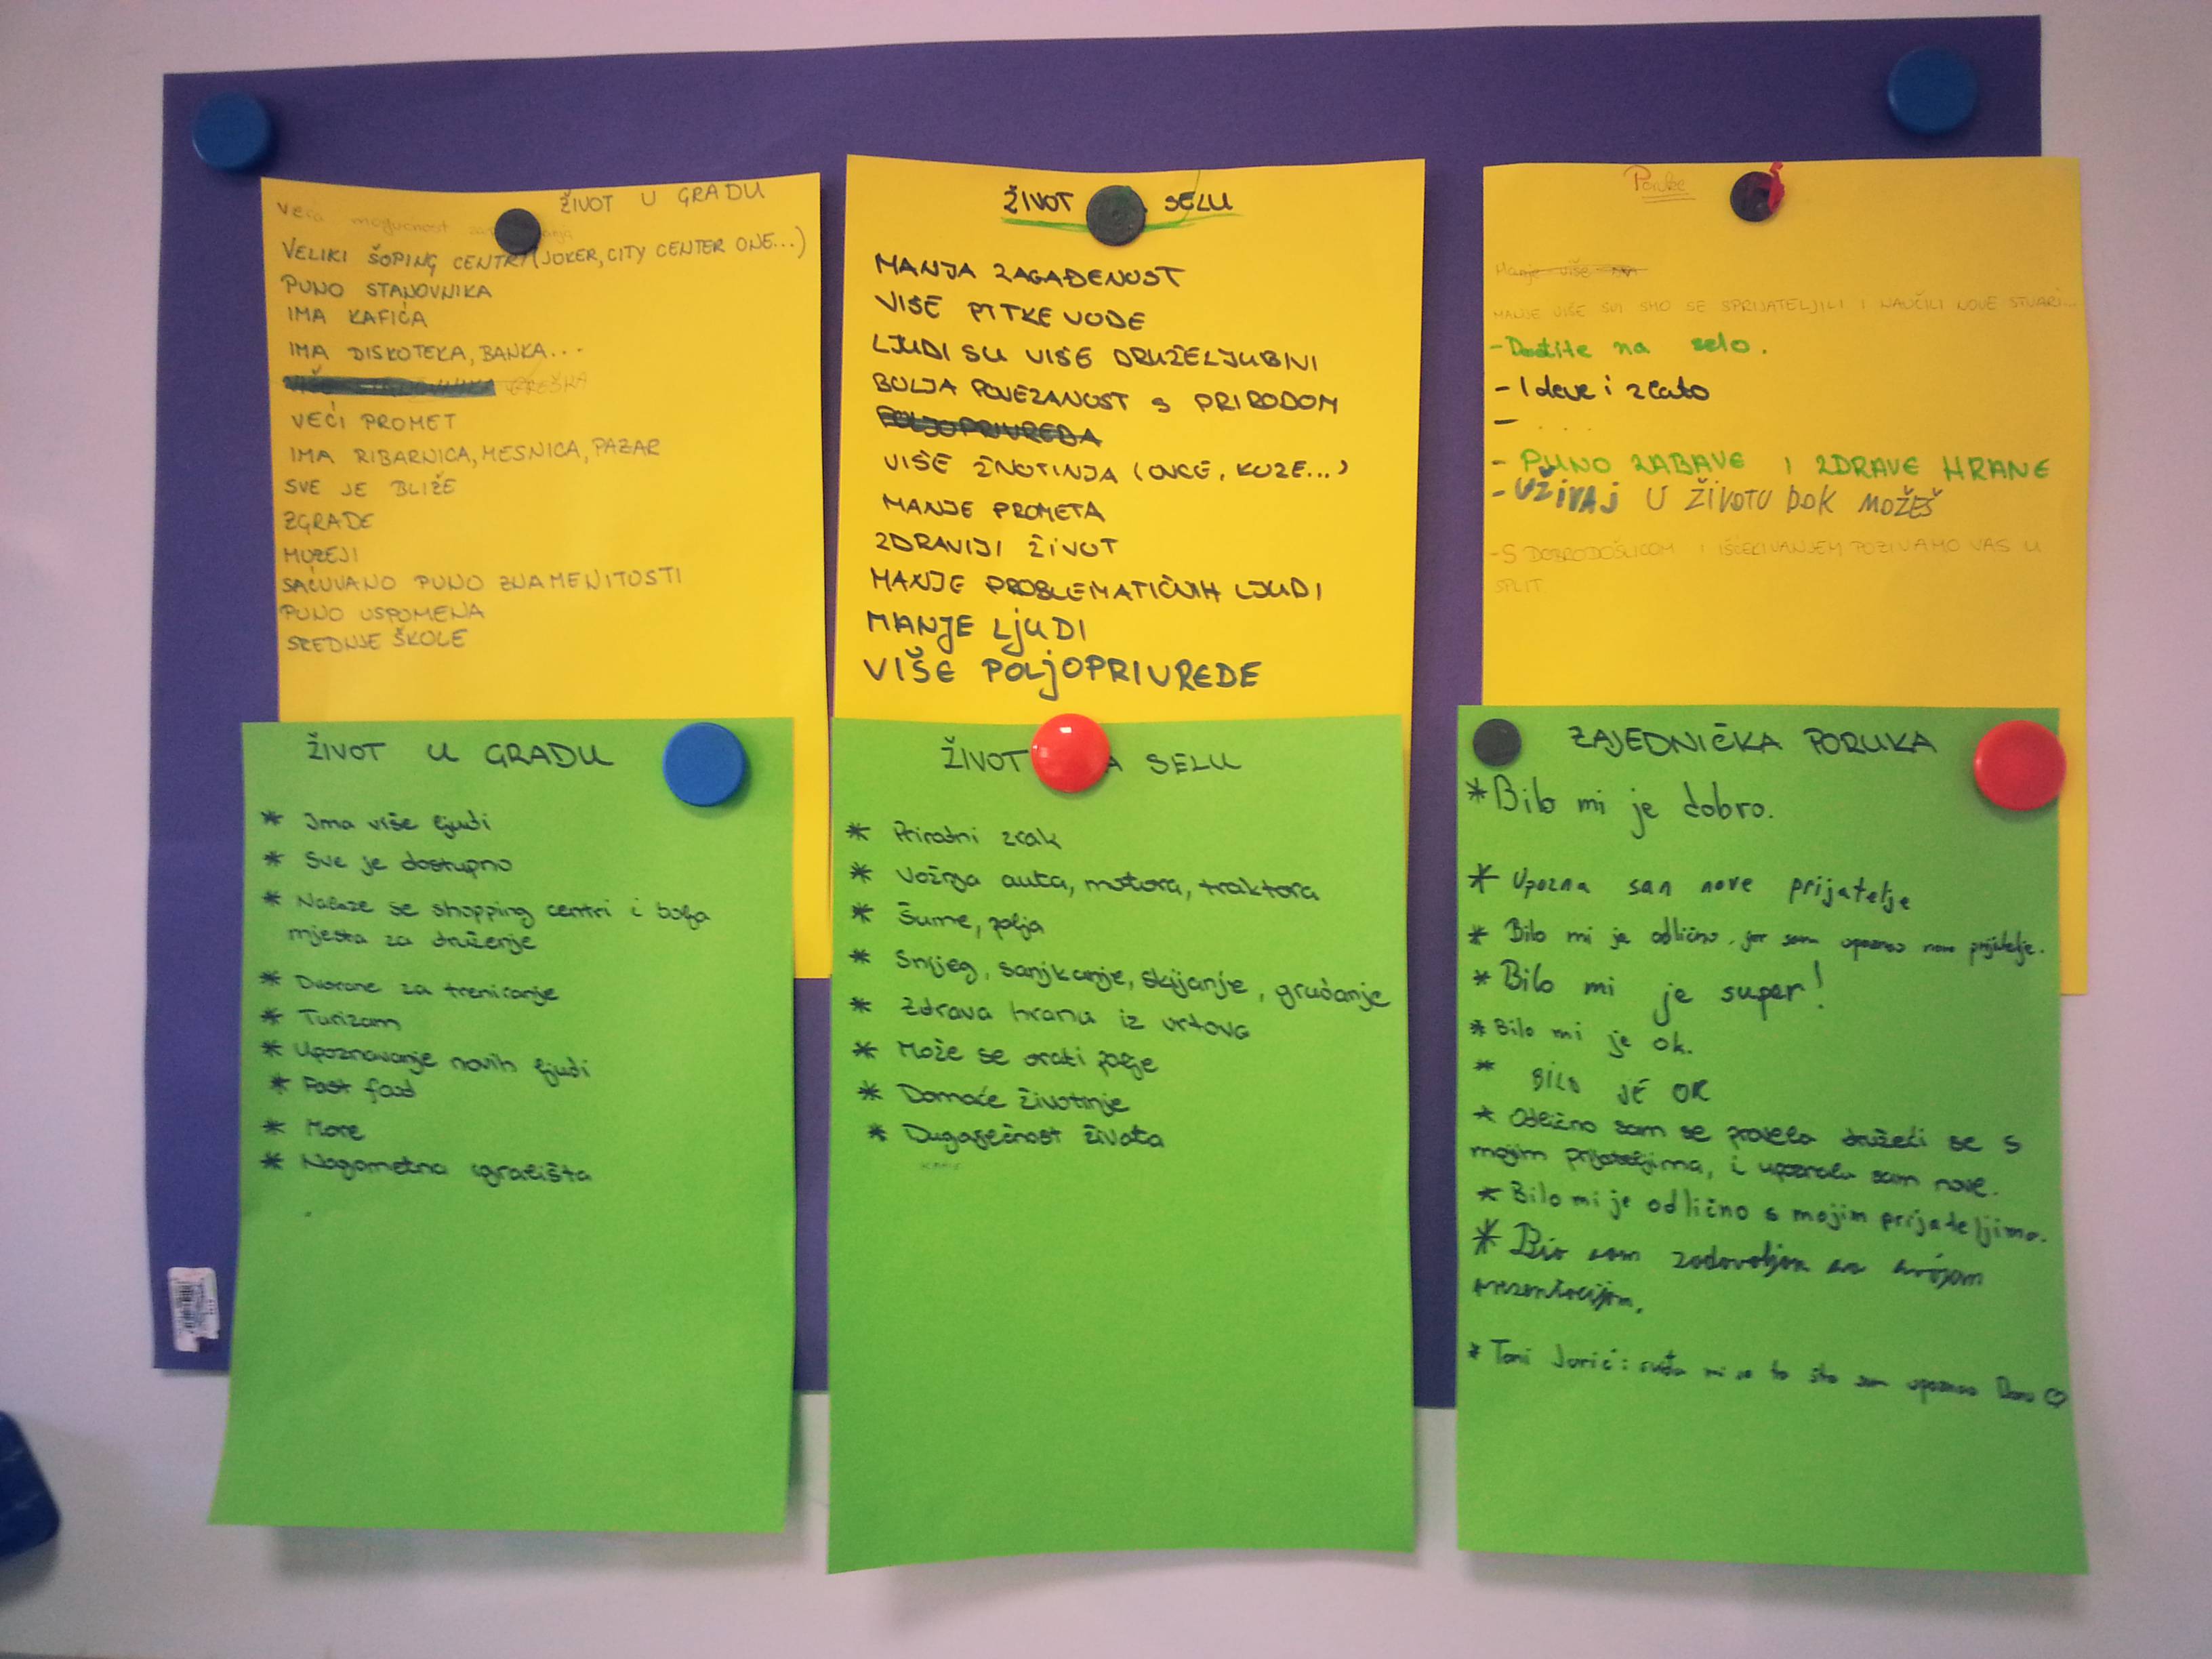 ŽIVOT U GRADU
Veća mogućnost
VELIKI ŠOPING CENTRI (JOKER, CITY CENTER ONE...)
PUNO STANOVNIKA
IMA KAFIĆA
IMA DISKOTEKA, BANKA...
GREŠKA
VEĆI PROMET
IMA RIBARNICA, MESNICA, PAZAR
SVE JE BLIŽE
ZGRADE
MUZEJI
SAČUVANO PUNO ZNAMENITOSTI
PUNO USPOMENA
SREDNJE ŠKOLE
ŽIVOT SELU
MANJA ZAGAĐENOST
VIŠE PITKE VODE
LJUDI SU VIŠE DRUŽELJUBIVI
BOLJA POVEZANOST S PRIRODOM
POLJOPRIVREDA
VIŠE ŽIVOTINJA (OVCE, KOZE...)
MANJE PROMETA
ZDRAVIJI ŽIVOT
MANJE PROBLEMATIČNIH LJUDI
MANJE LJUDI
VIŠE POLJOPRIVREDE
Poruke
Manje više
MANJE VIŠE SVI SMO SE SPRIJATELJILI I NAUČILI NOVE STVARI...
- Dođite na selo.
- I deve i zlato
- ...
- PUNO ZABAVE I ZDRAVE HRANE
- UŽIVAJ U ŽIVOTU DOK MOŽEŠ
- S DOBRODOŠLICOM I IŠČEKIVANJEM POZIVAMO VAS U
SPLIT
ŽIVOT U GRADU
* Ima više ljudi
* Sve je dostupno
* Nalaze se shopping centri i bolja
mjesta za druženje
* Dvorane za treniranje
* Turizam
* Upoznavanje novih ljudi
* Fast food
* More
* Nogometna igrališta
ŽIVOT A SELU
* Prirodni zrak
* Vožnja auta, motora, traktora
* Šume, polja
* Snijeg, sanjkanje, skijanje, grudanje
* Zdrava hrana iz vrtova
* Može se orati polje
* Domaće životinje
* Dugovječnost života
ZAJEDNIČKA PORUKA
* Bilo mi je dobro.
* Upozna san nove prijatelje
* Bilo mi je odlično, jer sam upoznao nove prijatelje.
* Bilo mi je super!
* Bilo mi je ok.
* BILO JE OK
* Odlično sam se provela družeći se s
mojim prijateljima, i upoznala sam nove.
* Bilo mi je odlično s mojim prijateljima.
* Bio sam zadovoljan sa svojom
prezentacijom.
* Toni Jurić: sviđa mi se to što sam upoznao